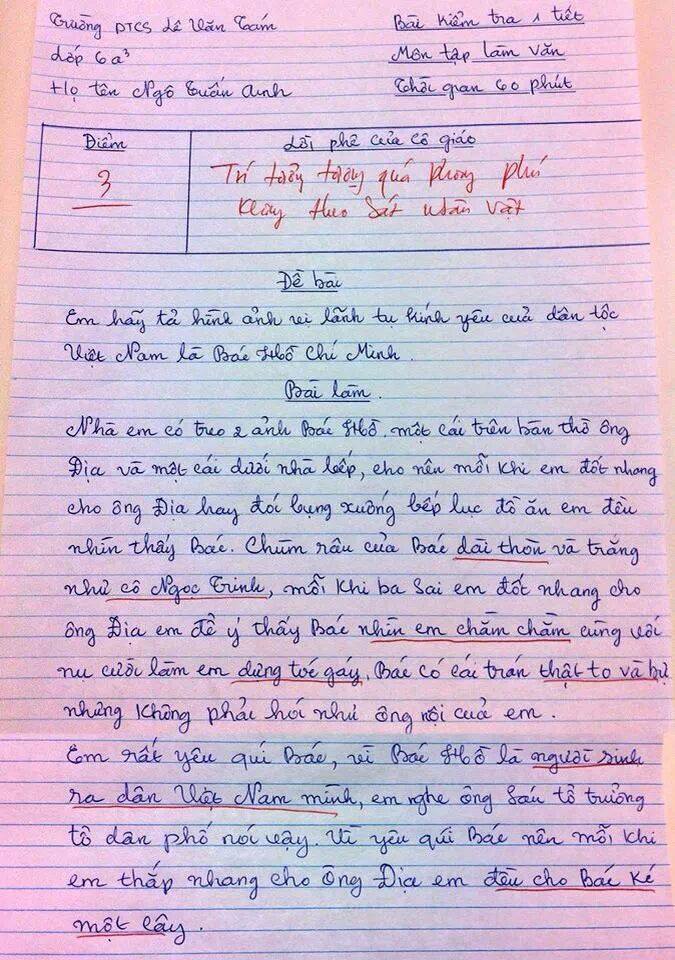 Trường PTCS Lê Văn Tám
Bài kiểm tra 1 tiết
Lớp 6a³
Môn tập làm văn
Họ tên Ngô Tuấn Anh
Thời gian 60 phút
Điểm
Lời phê của cô giáo
3
Trí tưởng tượng quá phong phú
không theo sát nhân vật
Đề bài
Em hãy tả hình ảnh vị lãnh tụ kính yêu của dân tộc
Việt Nam là Bác Hồ Chí Minh.
Bài làm.
Nhà em có treo 2 ảnh Bác Hồ. một cái trên bàn thờ ông
Địa và một cái dưới nhà bếp, cho nên mỗi khi em đốt nhang
cho ông Địa hay đói bụng xuống bếp lục đồ ăn em đều
nhìn thấy Bác. Chùm râu của Bác dài thòn và trắng
như cô Ngọc Trinh, mỗi khi ba sai em đốt nhang cho
ông Địa em để ý thấy Bác nhìn em chằm chằm cùng với
nụ cười làm em dựng tóc gáy. Bác có cái trán thật to và bự
nhưng không phải hói như ông nội của em.
Em rất yêu quí Bác, vì Bác Hồ là người sinh
ra dân Việt Nam mình, em nghe ông Sáu tổ trưởng
tổ dân phố nói vậy. Vì yêu qúi Bác nên mỗi khi
em thắp nhang cho Ông Địa em đều cho Bác ké
một cây.